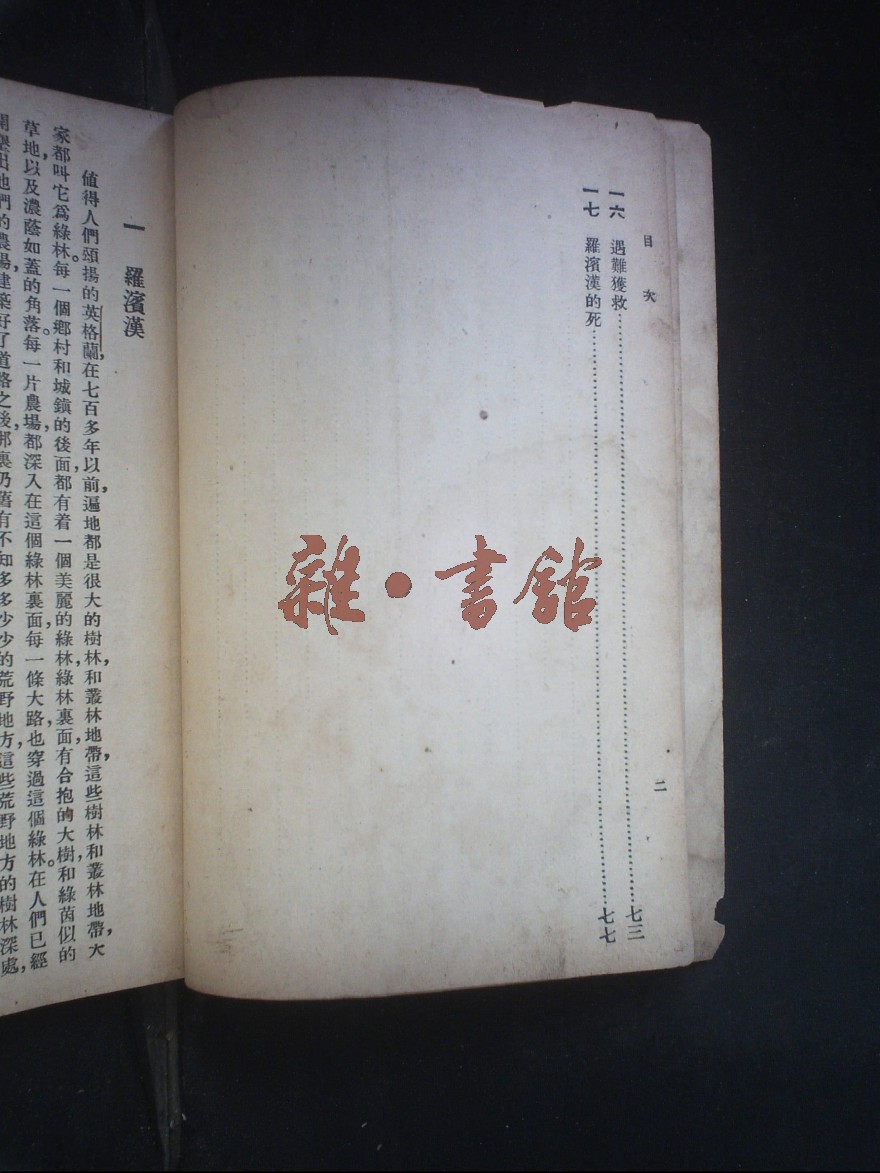 目次
一六　遇難獲救……七三
一七　羅濱漢的死……七七
二
雜・書館
一　羅濱漢
值得人們頌揚的英格蘭，在七百多年以前，遍地都是很大的樹林，和叢林地帶，這些樹林和叢林地帶，大
家都叫它爲綠林。每一個鄉村和城鎮的後面，都有着一個美麗的綠林，綠林裏面，有合抱的大樹，和綠茵似的
草地，以及濃蔭如蓋的角落。每一片農場，都深入在這個綠林裏面，每一條大路，也穿過這個綠林。在人們已經
開墾出他們的農場，建築好了道路之後，那裏仍舊有不知多多少少的荒野地方，這些荒野地方的樹林深處，